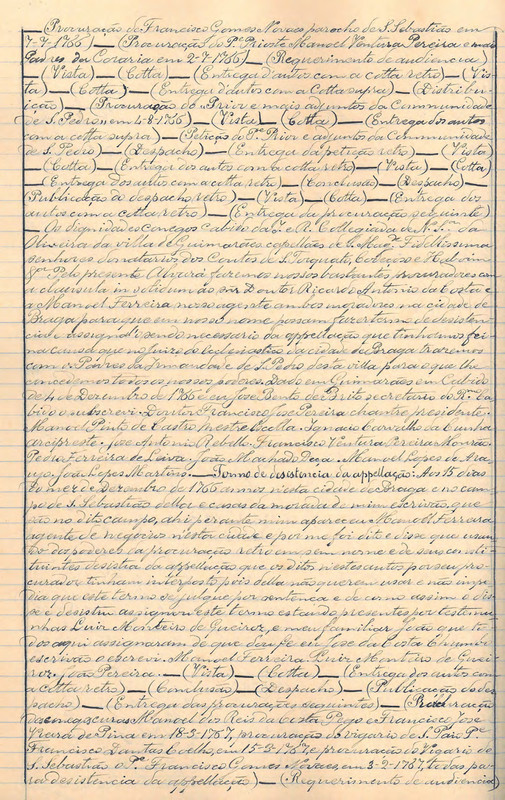 — (Procuração de Francisco Gomes Novaes parocho de S. Sebastião em
7-7-1766) — (Procuração do P.e Prioste Manoel Ventura Pereira e mais
Padres da Coraria em 2-7-1766) — (Requerimento de audiencia)
— (Vista) — (Cotta) — (Entrega d'autos com a cotta retro) — (Vis-
ta) — (Cotta) — (Entrega d'autos com a Cotta supra) — (Distribui-
ição) — (Procuração do Prior e mais adjuntos da Communidade
de S. Pedro em 4-8-1766) — (Vista) — (Cotta) — (Entrega dos autos
com a cotta supra) — (Petição do P.e Prior e adjuntos da Communidade
de S. Pedro) — (Despacho) — (Entrega da petição retro) — (Vista)
— (Cotta) — (Entrega dos autos com a cotta retro) — (Vista) — (Cotta)
— (Entrega dos autos com a cotta retro) — (Conclusão) — (Despacho) —
(Publicação do despacho retro) — (Vista) — (Cotta) — (Entrega dos
autos com a cotta retro) — (Entrega da procuração seguinte)
— Os Dignidades conegos Cabido da I. e R. Collegiada de N. S.ra da
Oliveira da villa de Guimarães capellães de S. Mag.e Fidelissima
senhores donatarios dos Coutos de S. Torquato, Codeçoso e
Pelo presente Alvará fazemos nossos bastantes procuradores com
a clausula in solidum ao snr Doutor Ricardo Antonio da Costa e
a Manoel Ferreira nosso agente ambos moradores na cidade de
Braga para que em nosso nome possam fazer termo de desisten-
cia e assignal-o sendo necessario da appellação que tinhamos fei-
na causa que no Juizo dos da cidade de Braga trazemos
com os Padres da Irmandade de S. Pedro desta villa para o que lhe
concedemos todos os nossos poderes. Dado em Guimarães em Cabido
de 4 de Dezembro de 1766 e eu José Bento de Brito secretario do R.do Ca-
bido o subscrevi. Doutor Francisco José Pereira chantre presidente.
Manoel Pinto de Castro Mestre Escolla. Ignacio Carvalho da Cunha
arcipreste. José Antonio Rebello. Francisco Ventura Pereira Monrão.
Pedro Ferreira de Leiva. João Machado Deça. Manoel Lopes de Arau-
jo. João Lopes Martins. — Termo de desistencia da appellação: Aos 15 dias
do mez de Dezembro de 1766 annos nesta cidade de Braga e no cam-
po de S. Sebastião della e casas da morada de mim escrivão, que
são no dito campo, ahi perante mim appareceu Manoel Ferreira
agente de negocios nesta cidade e por me foi dito e disse que usan-
do dos poderes da procuração retro em seu nome e de seus consti-
tuintes desistia da appellação que os ditos nestes autos por seu pro-
curador tinham interposto pois della não querem usar e não impe-
dia que este termo se julgue por sentença e de como assim o dis-
se e desistiu assignou este termo estando presentes por testemu-
nhas Luiz Monteiro de Queiroz, e meu familiar João que to-
dos aqui assignaram de que dou fé eu José da Costa
escrivão o escrevi. Manoel Ferreira. Luiz Monteiro de Quei-
roz. João Pereira. — (Vista) — (Cotta) — (Entrega dos autos com
a cotta retro) — (Conclusão) — (Despacho) — (Publicação do des-
pacho) — (Entrega das procurações seguintes) — (Procuração
Manoel dos Reis da Costa Pego e Francisco José
Vieira de Pina em 18-3-1767, procuração do vigario de S. Paio P.e
Francisco Dantas Coelho em 15-3-1767, e procuração do Vigario de
S. Sebastião o P.e Francisco Gomes Novaes em 3-2-1767, todas pa-
ra desistencia da appellação) — (Requerimento de audiencia)